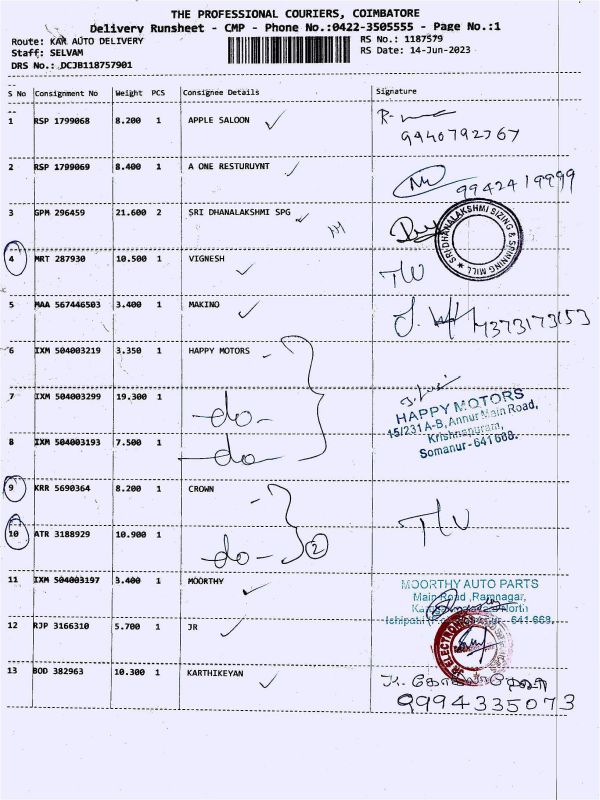 THE PROFESSIONAL COURIERS, COIMBATORE
Delivery Runsheet - CMP - Phone No.:0422-3505555 - Page No.:1
Route: KAR AUTO DELIVERY RS No.: 1187579
Staff: SELVAM RS Date: 14-Jun-2023
DRS No.: DCJB118757901
S No Consignment No Weight PCS Consignee Details Signature
1 RSP 1799068 8.200 1 APPLE SALOON
9940792767
2 RSP 1799069 8.400 1 A ONE RESTURUYNT
9942419999
3 GPM 296459 21.600 2 SRI DHANALAKSHMI SPG
SRI DHANALAKSHMI SIZING & SPINNING MILL
4 MRT 287930 10.500 1 VIGNESH
5 MAA 567446503 3.400 1 MAKINO
7373173153
6 IXM 504003219 3.350 1 HAPPY MOTORS
7 IXM 504003299 19.300 1 -do-
HAPPY MOTORS
15/231 A-B, Annur Main Road,
Krishnapuram,
Somanur - 641 668.
8 IXM 504003193 7.500 1 -do-
9 KRR 5690364 8.200 1 CROWN
10 ATR 3188929 10.900 1 -do- 2
11 IXM 504003197 3.400 1 MOORTHY
MOORTHY AUTO PARTS
Main Road, Ramnagar,
641 668.
12 RJP 3166310 5.700 1 JR
JR ELECTRO
13 BOD 382963 10.300 1 KARTHIKEYAN
9994335073